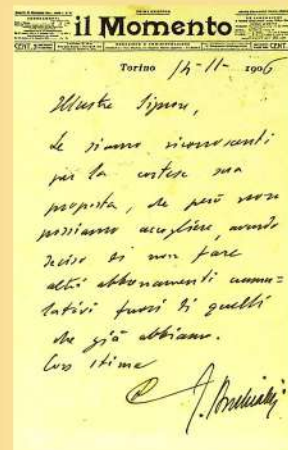 il Momento
Torino 14-11-1906
Illustre Signore,
Le siamo riconoscenti
per la cortese sua
proposta, che però non
possiamo accogliere, avendo
deciso di non fare
altri abbonamenti cumu-
lativi fuori di quelli
che già abbiamo.
Con stima